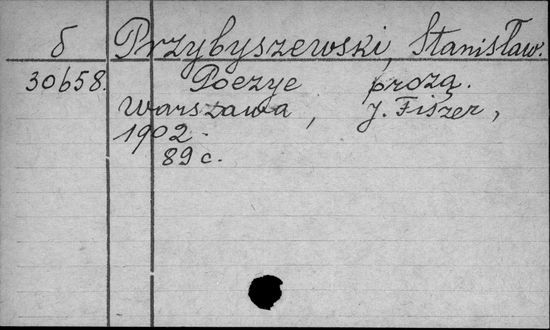 б Przybyszewski, Stanisław.
30658. Poezye prozą.
Warszawa, J. Fiszer,
1902.
89 c.